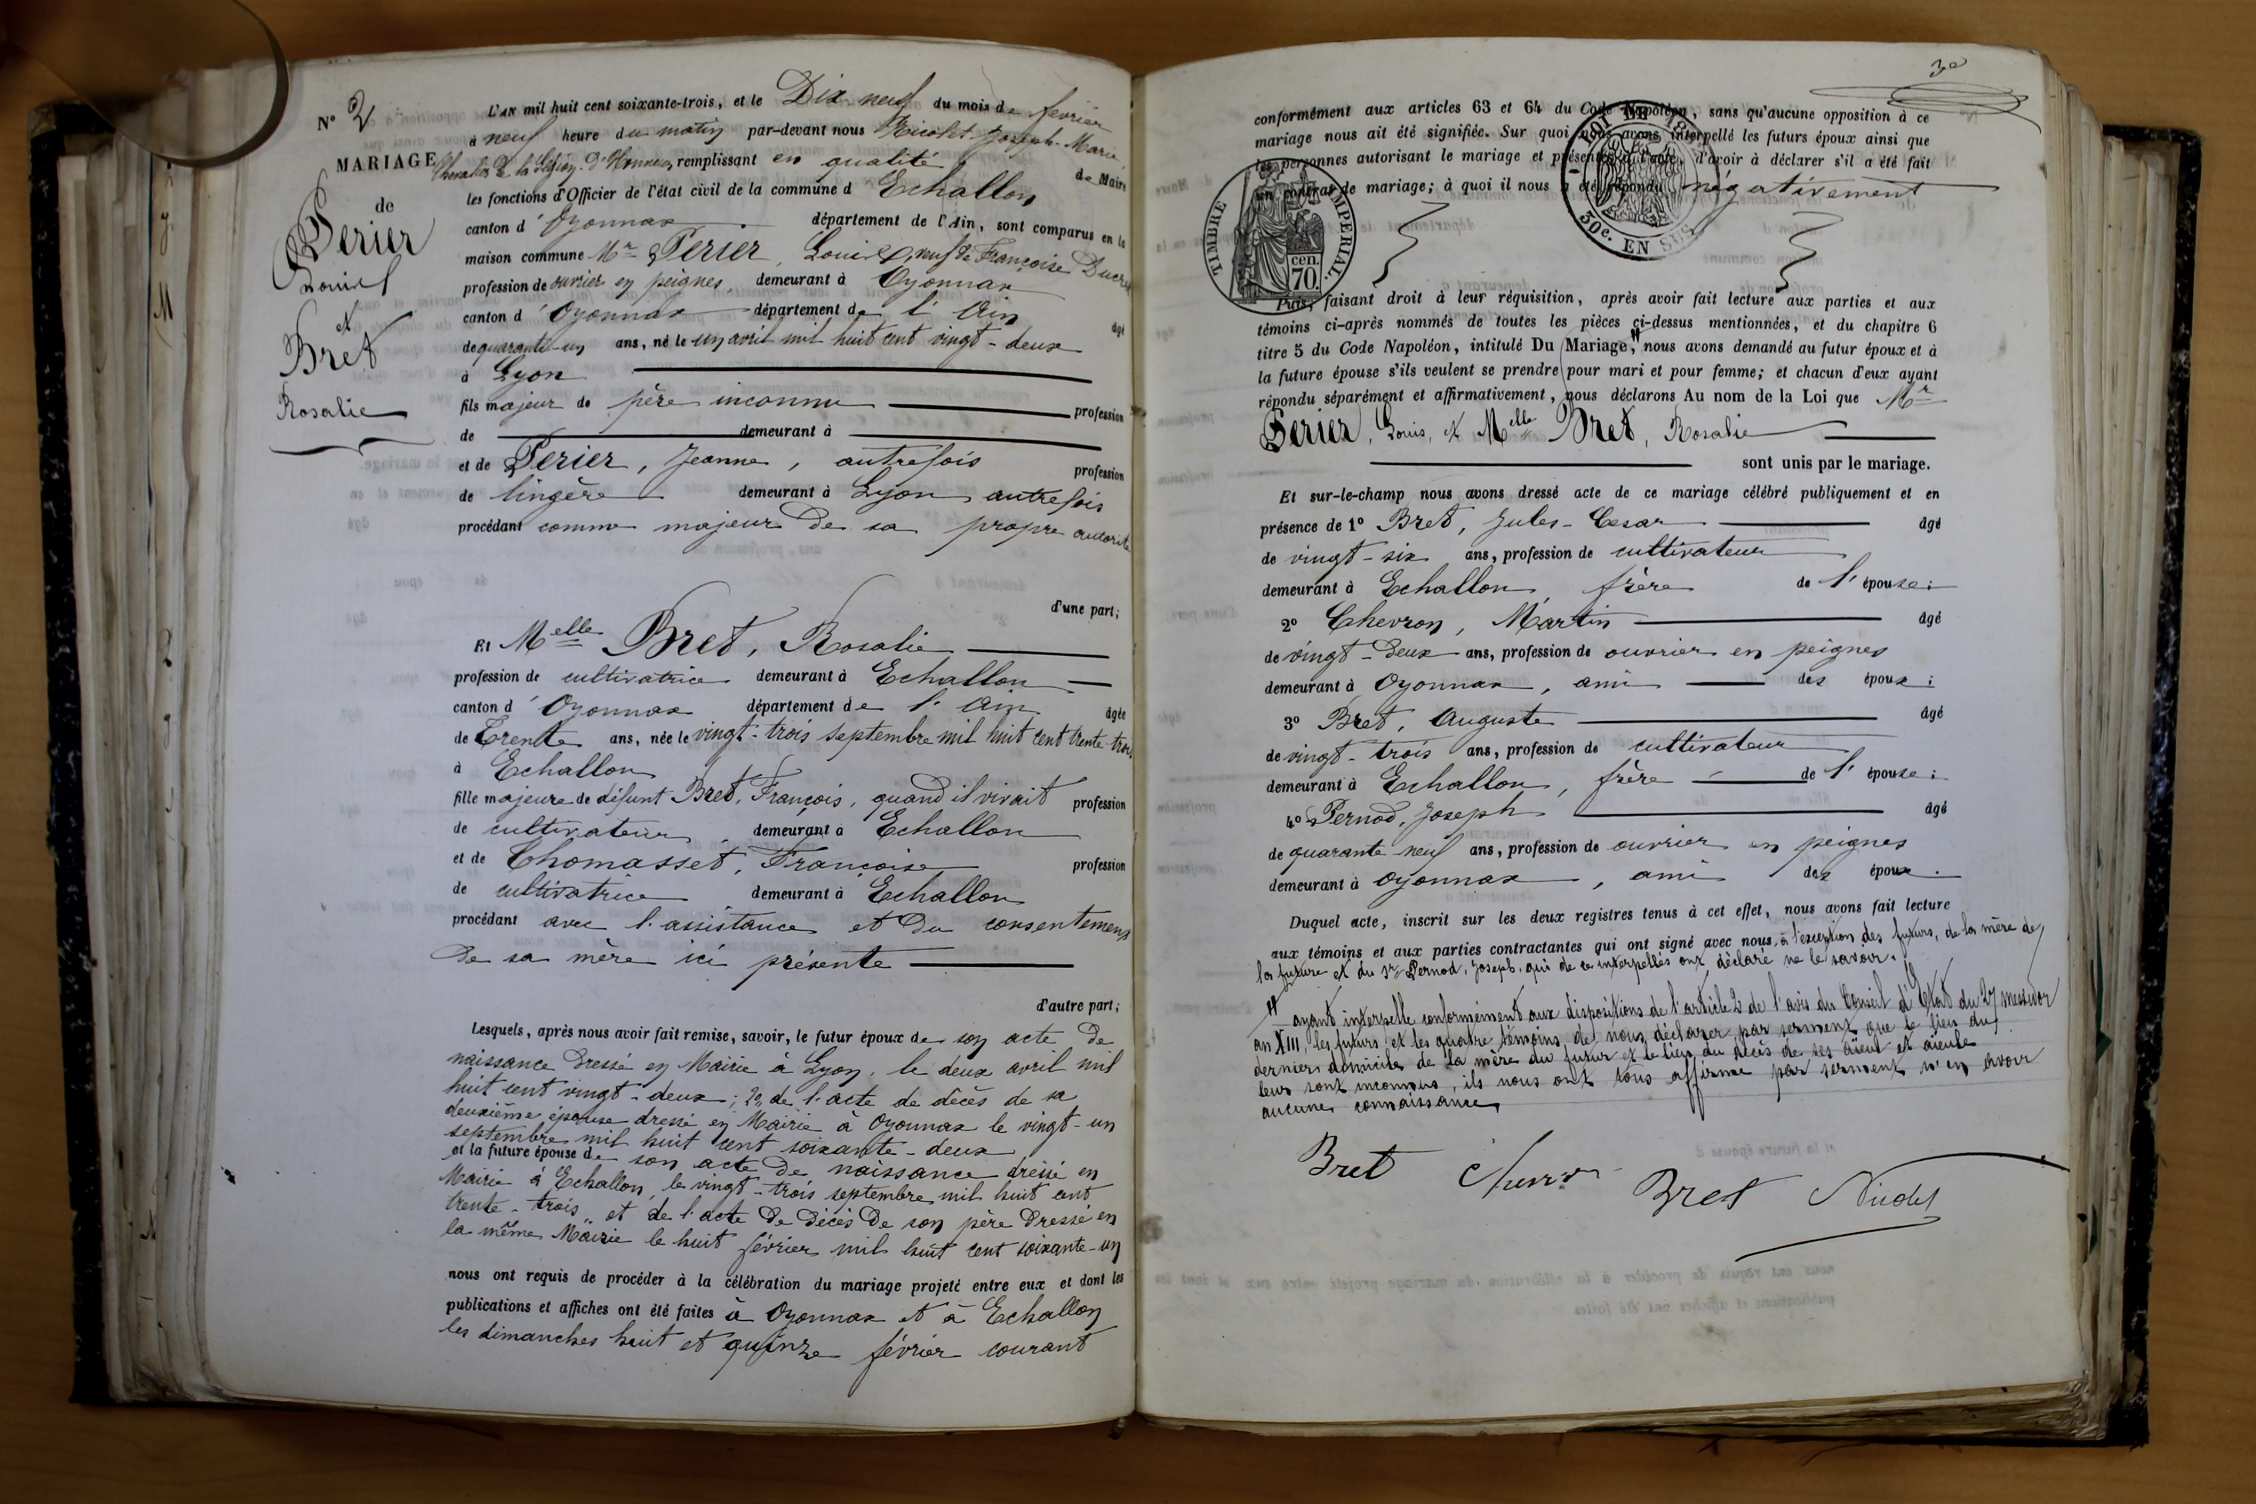 N° 2
MARIAGE
de
Perier
Louis
et
Bret
Rosalie
L'AN mil huit cent soixante-trois, et le Dix neuf du mois de février
à neuf heure du matin par-devant nous Nicolet Joseph-Marie,
Chevalier de la Légion d'Honneur, remplissant en qualité de Maire
les fonctions d'Officier de l'état civil de la commune d Echallon
canton d'Oyonnax département de l'Ain, sont comparus en la
maison commune Mr Perier, Louis, veuf de Françoise Ducret
profession de ouvrier en peignes, demeurant à Oyonnax
canton d'Oyonnax département de l'Ain âgé
de quarante-un ans, né le un avril mil huit cent vingt-deux
à Lyon
fils majeur de père inconnu profession
de demeurant à
et de Perier, Jeanne, autrefois profession
de lingère demeurant à Lyon autrefois
procédant comme majeur de sa propre autorité
d'une part;
Et Melle Bret, Rosalie
profession de cultivatrice demeurant à Echallon
canton d'Oyonnax département de l'Ain âgée
de Trente ans, née le vingt-trois septembre mil huit cent trente-trois
à Echallon
fille majeure de défunt Bret, François, quand il vivait profession
de cultivateur demeurant à Echallon
et de Chomasset, Françoise profession
de cultivatrice demeurant à Echallon
procédant avec l'assistance et du consentement
de sa mère ici présente
d'autre part;
Lesquels, après nous avoir fait remise, savoir, le futur époux de son acte de
naissance dressé en Mairie à Lyon, le deux avril mil
huit cent vingt-deux; 2° de l'acte de décès de sa
deuxième épouse dressé en Mairie à Oyonnax le vingt-un
septembre mil huit cent soixante-deux
et la future épouse de son acte de naissance dressé en
Mairie à Echallon, le vingt-trois septembre mil huit cent
trente-trois et de l'acte de décès de son père dressé en
la même Mairie le huit février mil huit cent soixante-un
nous ont requis de procéder à la célébration du mariage projeté entre eux et dont les
publications et affiches ont été faites à Oyonnax et à Echallon
les dimanches huit et quinze février courant
conformément aux articles 63 et 64 du Code Napoléon, sans qu'aucune opposition à ce
mariage nous ait été signifiée. Sur quoi nous avons interpellé les futurs époux ainsi que
les personnes autorisant le mariage et présentes à l'acte, d'avoir à déclarer s'il a été fait
un contrat de mariage; à quoi il nous a été répondu négativement
TIMBRE IMPERIAL.
cen. 70.
LOI DE 18
30c. EN SUS
Puis, faisant droit à leur réquisition, après avoir fait lecture aux parties et aux
témoins ci-après nommés de toutes les pièces ci-dessus mentionnées, et du chapitre 6
titre 5 du Code Napoléon, intitulé Du Mariage, nous avons demandé au futur époux et à
la future épouse s'ils veulent se prendre pour mari et pour femme; et chacun d'eux ayant
répondu séparément et affirmativement, nous déclarons Au nom de la Loi que Mr
Perier, Louis, et Melle Bret, Rosalie
sont unis par le mariage.
Et sur-le-champ nous avons dressé acte de ce mariage célébré publiquement et en
présence de 1° Bret, Jules-Cesar âgé
de vingt-six ans, profession de cultivateur
demeurant à Echallon, frère de l'épouse;
2° Chevron, Martin âgé
de vingt-deux ans, profession de ouvrier en peignes
demeurant à Oyonnax, ami des époux;
3° Bret, Auguste âgé
de vingt-trois ans, profession de cultivateur
demeurant à Echallon, frère de l'épouse;
4° Pernod, Joseph âgé
de quarante neuf ans, profession de ouvrier en peignes
demeurant à Oyonnax, ami des époux.
Duquel acte, inscrit sur les deux registres tenus à cet effet, nous avons fait lecture
aux témoins et aux parties contractantes qui ont signé avec nous, à l'exception des futurs, de la mère de
la future et du Sr Pernod, Joseph, qui de ce interpellés ont déclaré ne le savoir.
ayant interpellé conformément aux dispositions de l'article 2 de l'avis du Conseil d'Etat du 27 messidor
an XIII, les futurs et les quatre témoins de nous déclarer par serment que le lieu du
dernier domicile de la mère du futur et le lieu du décès de ses aïeul et aïeule
leur sont inconnus, ils nous ont tous affirmé par serment n'en avoir
aucune connaissance
Bret Bret